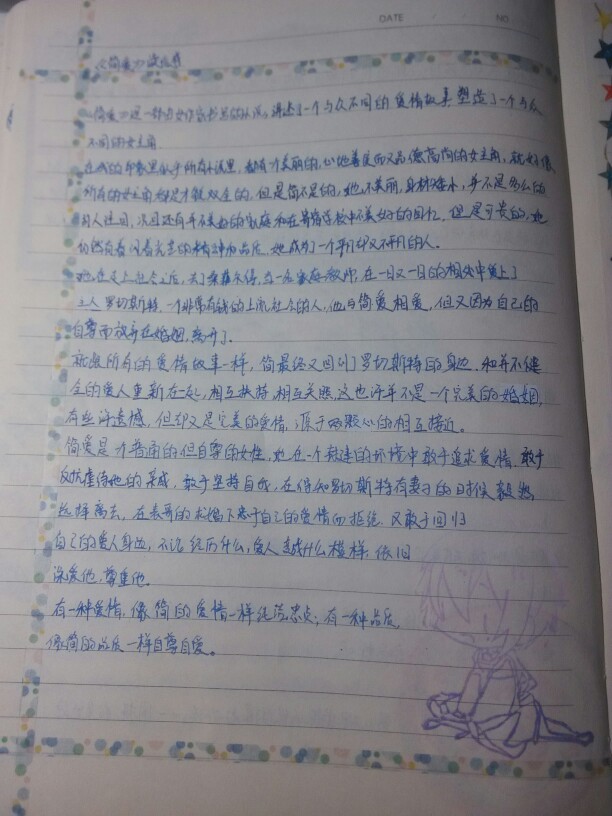 DATE / / NO
《简爱》读后感
《简爱》这一部由女作家书写的小说，讲述了一个与众不同的爱情故事，塑造了一个与众
不同的女主角
在我的印象里似乎所有小说里，都有个美丽的，心地善良而又品德高尚的女主角，就好像
所有的女主角都是才貌双全的，但是简不是的，她不美丽，身材矮小，并不是多么的
引人注目，况且还有并不美好的家庭和在寄宿学校中不美好的回忆，但是可贵的，她
仍然有着闪着光芒的精神和品质，她成为了一个平凡却又不平凡的人。
她在走上社会之后，去了桑菲尔得，当一名家庭教师，在一日又一日的相处中爱上了
主人罗切斯特，一个非常有钱的上流社会的人，他与简爱相爱，但又因为自己的
自尊而放弃在婚姻，离开了。
就像所有的爱情故事一样，简最终又回到了罗切斯特的身边，和并不健
全的爱人重新在一起，相互扶持，相互关照，这也许并不是一个完美的婚姻，
有些许遗憾，但却又是完美的爱情，源于两颗心的相互接近。
简爱是个普通的但自尊的女性，她在一个封建的环境中敢于追求爱情，敢于
反抗虐待她的亲戚，敢于坚持自我，在得知罗切斯特有妻子的时候毅然
选择离去，在表哥的求婚下忠于自己的爱情而拒绝，又敢于回归
自己的爱人身边，不论经历什么，爱人变成什么模样，依旧
深爱他，尊重他。
有一种爱情，像简的爱情一样纯洁；有一种品质，
像简的品质一样自尊自爱。